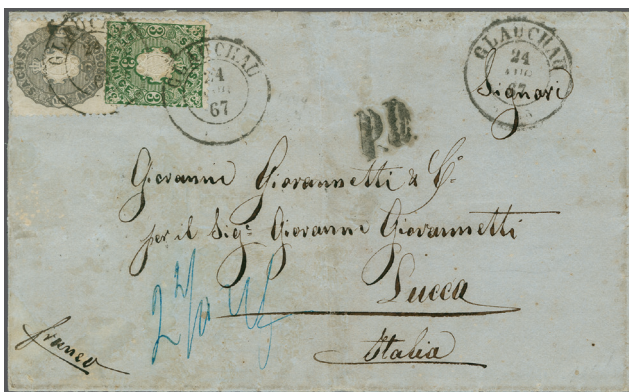 GLAUCHAU
GLAUCHAU
24
67
GLAUCHAU
24
67
P.D.
Signori
Giovanni Giovannetti & Co.
per il Sigr. Giovanni Giovannetti
Lucca
Italia
franco